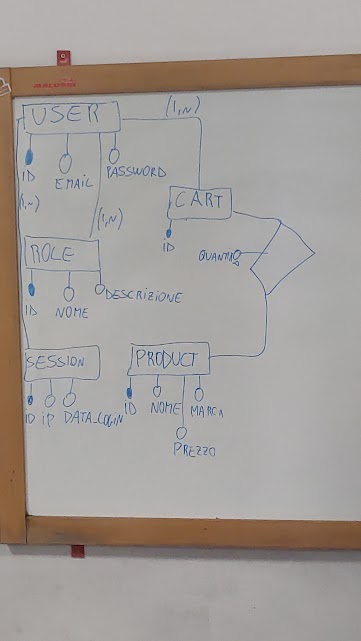 USER
(1,N)
ID
EMAIL
PASSWORD
(1,N)
(1,N)
CART
ID
QUANTITÀ
ROLE
ID
NOME
DESCRIZIONE
SESSION
ID
IP
DATA_LOGIN
PRODUCT
ID
NOME
MARCA
PREZZO